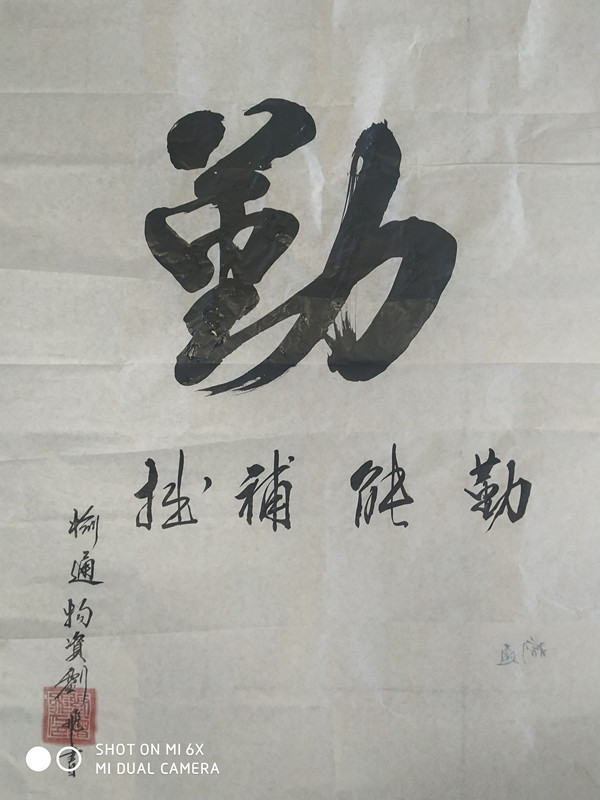 勤
勤能補拙
榆通物資劉
書
SHOT ON MI 6X
MI DUAL CAMERA